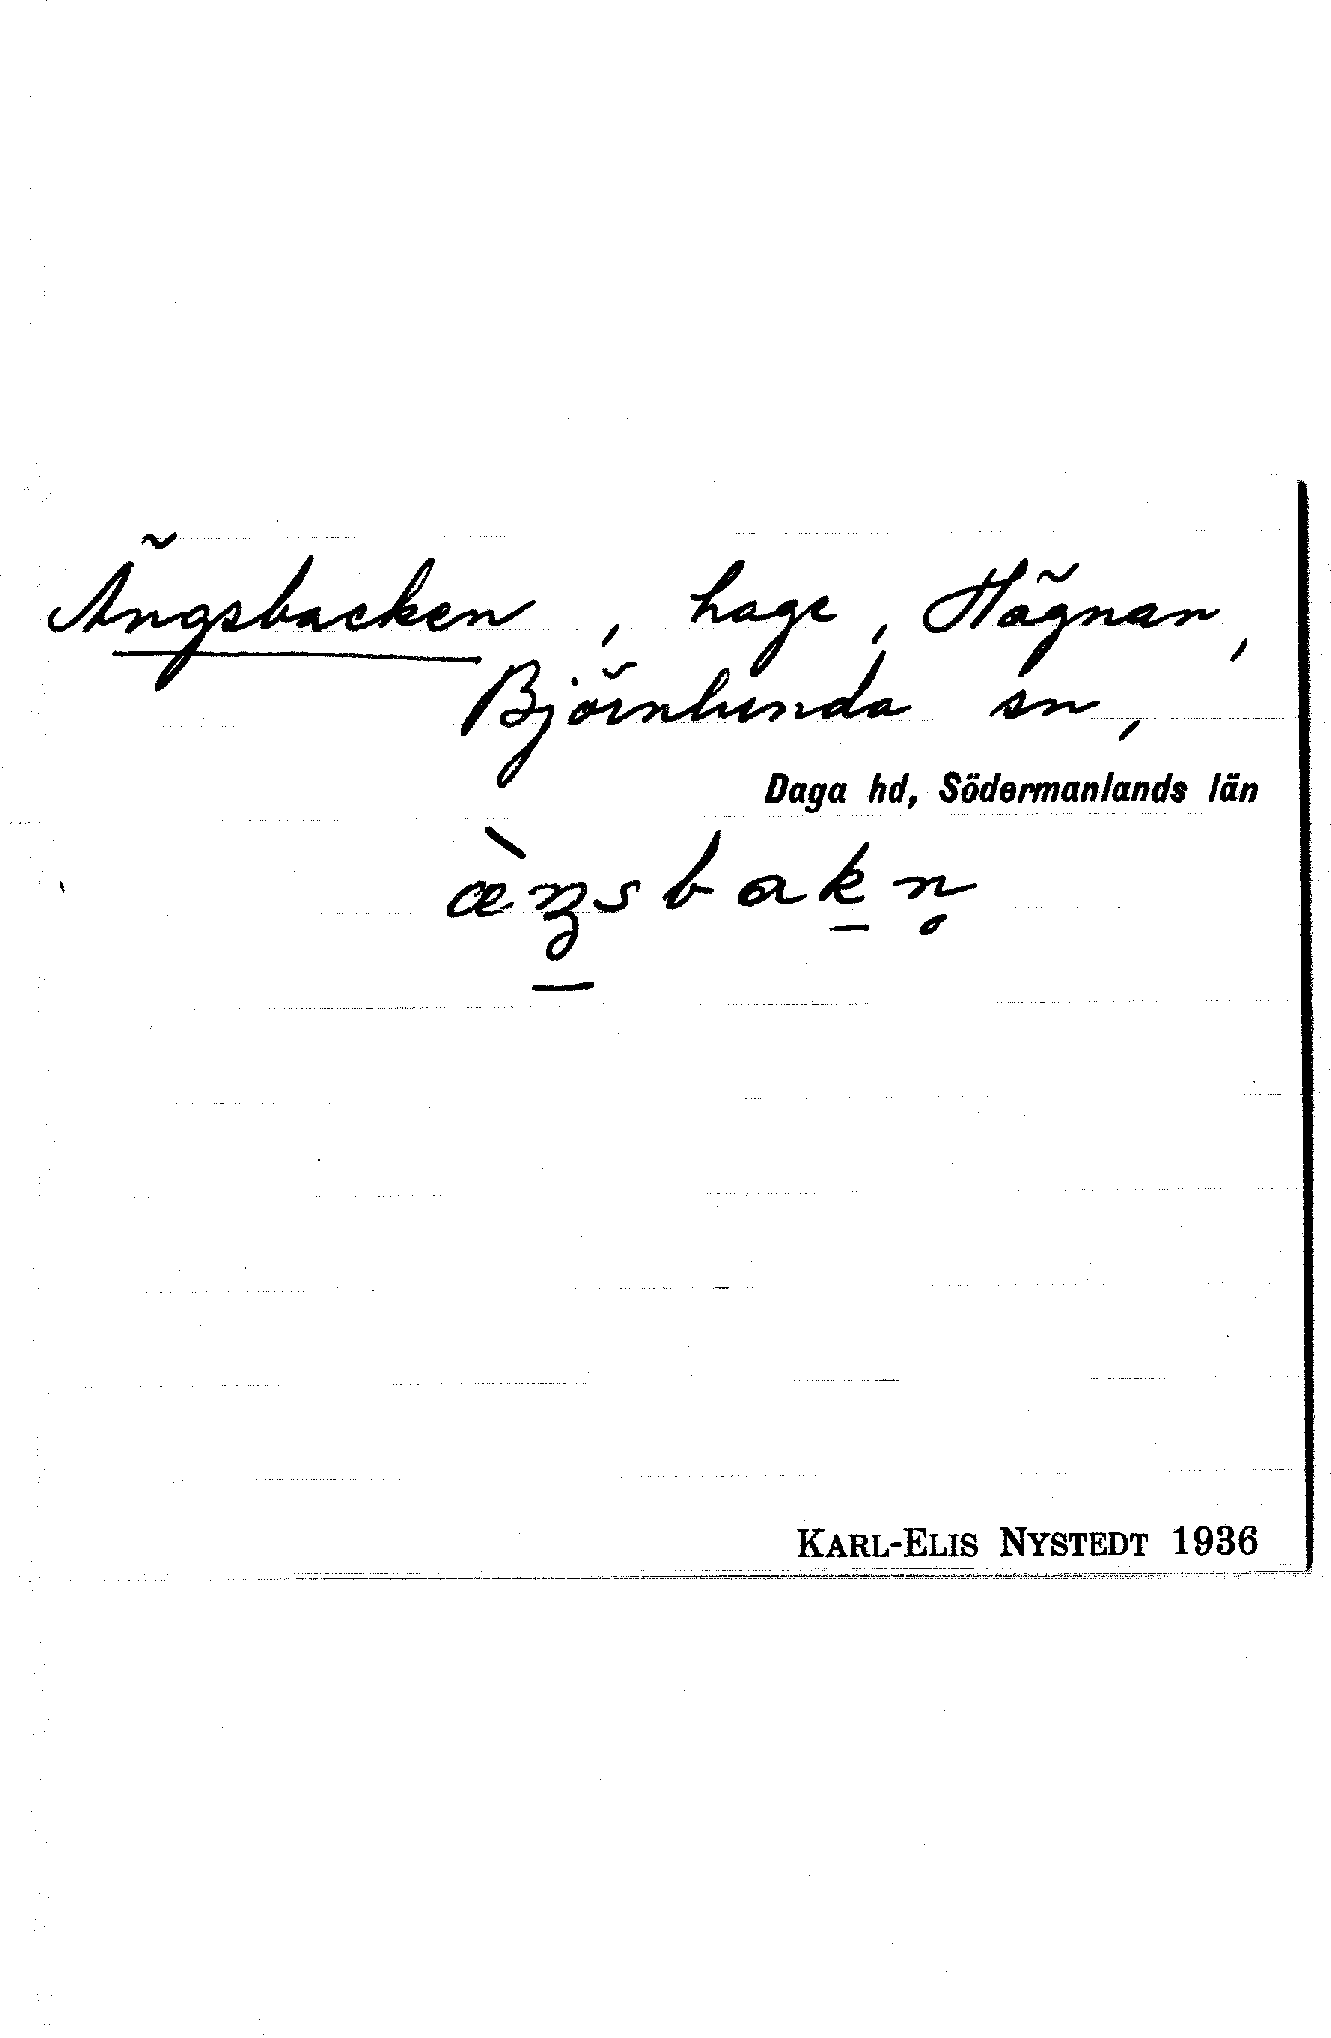 Ängsbacken, hage, Hägnan,
Björnlunda sn,
Daga hd, Södermanlands län
æ̀ŋ̲sbak̲n̥
KARL-ELIS NYSTEDT 1936